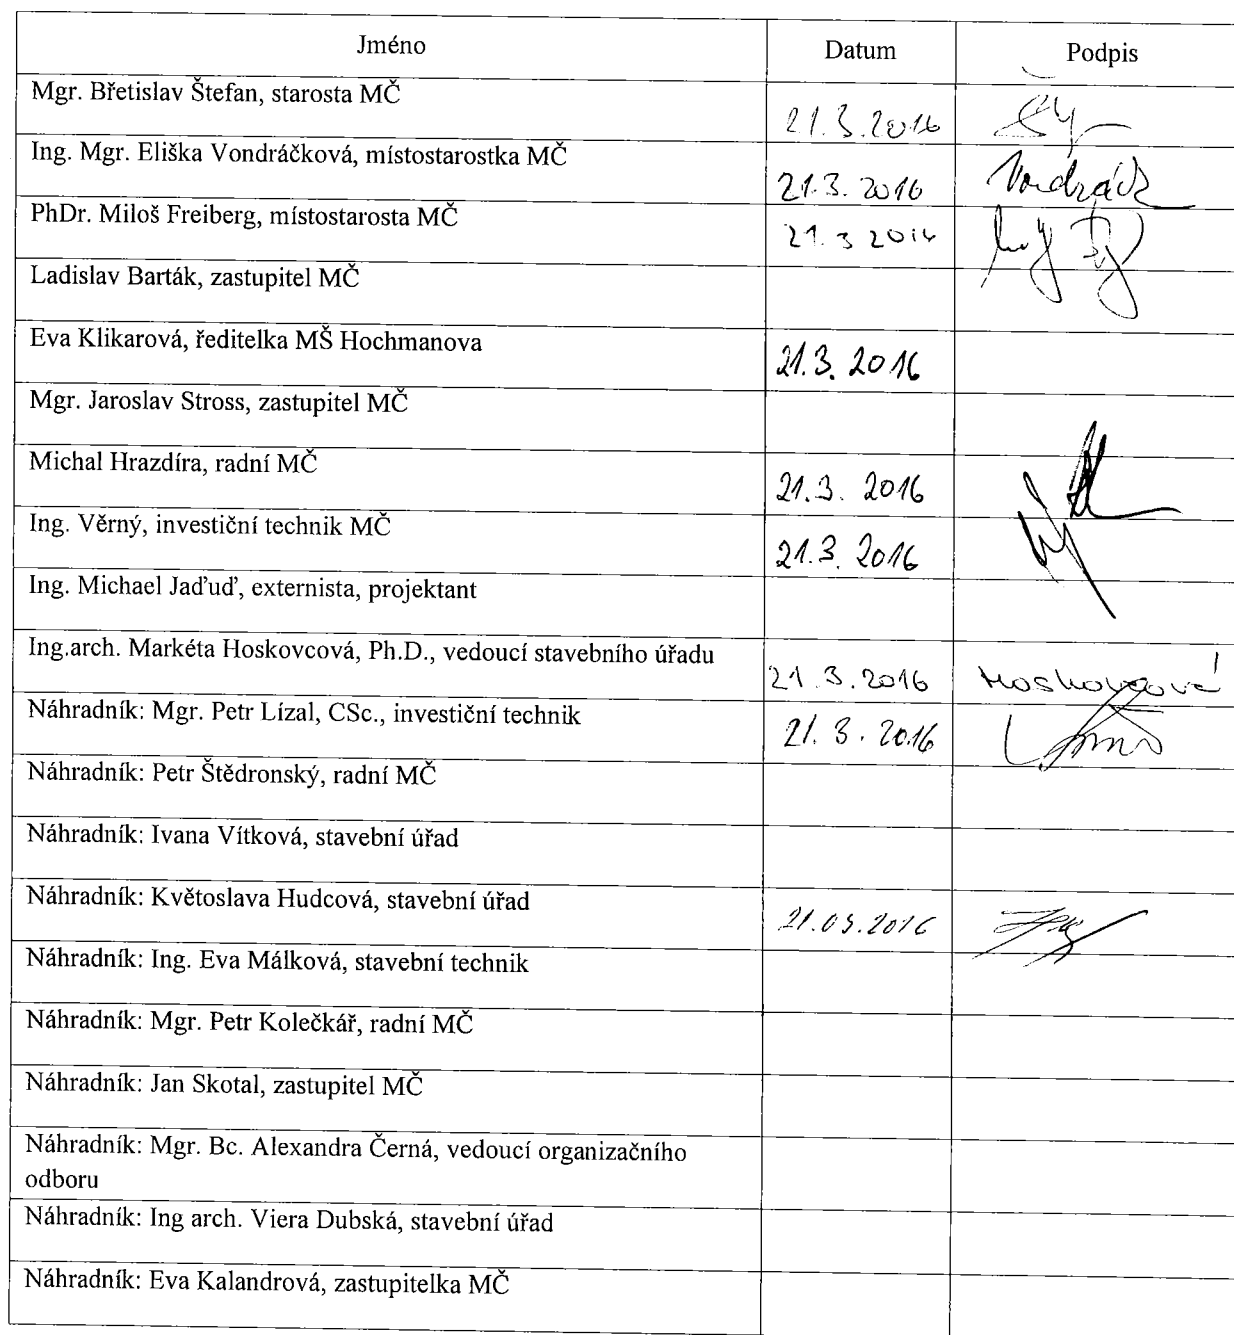 Jméno Datum Podpis
Mgr. Břetislav Štefan, starosta MČ 21.3.2016
Ing. Mgr. Eliška Vondráčková, místostarostka MČ 21.3.2016
PhDr. Miloš Freiberg, místostarosta MČ 21.3 2016
Ladislav Barták, zastupitel MČ
Eva Klikarová, ředitelka MŠ Hochmanova 21.3.2016
Mgr. Jaroslav Stross, zastupitel MČ
Michal Hrazdíra, radní MČ 21.3.2016
Ing. Věrný, investiční technik MČ 21.3.2016
Ing. Michael Jaďuď, externista, projektant
Ing.arch. Markéta Hoskovcová, Ph.D., vedoucí stavebního úřadu 21.3.2016 Hoskovcová
Náhradník: Mgr. Petr Lízal, CSc., investiční technik 21.3.2016
Náhradník: Petr Štědronský, radní MČ
Náhradník: Ivana Vítková, stavební úřad
Náhradník: Květoslava Hudcová, stavební úřad 21.03.2016
Náhradník: Ing. Eva Málková, stavební technik
Náhradník: Mgr. Petr Kolečkář, radní MČ
Náhradník: Jan Skotal, zastupitel MČ
Náhradník: Mgr. Bc. Alexandra Černá, vedoucí organizačního
odboru
Náhradník: Ing arch. Viera Dubská, stavební úřad
Náhradník: Eva Kalandrová, zastupitelka MČ